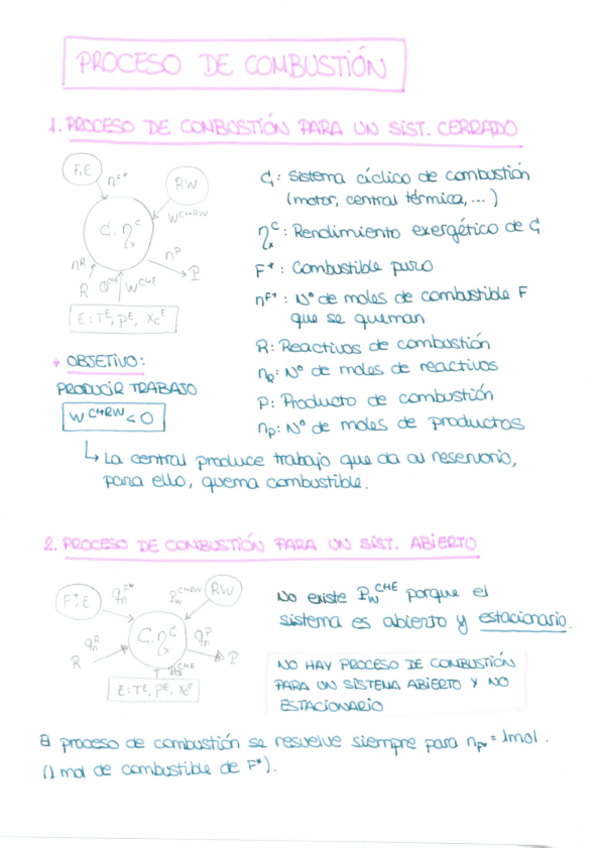 PROCESO DE COMBUSTIÓN
1. PROCESO DE COMBUSTIÓN PARA UN SIST. CERRADO
F,E
n^F*
RW
W^C←RW
C, η_x^C
n^R
n^P
R
Q^C←E
W^C←E
P
E: T^E, p^E, x_c^E
C: Sistema cíclico de combustión
(motor, central térmica, ...)
η_x^C: Rendimiento exergético de C
F*: Combustible puro
n^F*: Nº de moles de combustible F
que se queman
R: Reactivos de combustión
n_R: Nº de moles de reactivos
P: Producto de combustión
n_P: Nº de moles de productos
* OBJETIVO:
PRODUCIR TRABAJO
W^C←RW < 0
↳ La central produce trabajo que da al reservorio,
para ello, quema combustible.
2. PROCESO DE COMBUSTIÓN PARA UN SIST. ABIERTO
F*,E
q_n^F*
P_w^C←RW
RW
C, η_x^C
q_n^R
q_n^P
R
P
E: T^E, p^E, x_c^E
No existe P_w^C←E porque el
sistema es abierto y estacionario.
NO HAY PROCESO DE COMBUSTIÓN
PARA UN SISTEMA ABIERTO Y NO
ESTACIONARIO
El proceso de combustión se resuelve siempre para = 1mol.
(1 mol de combustible de F*).